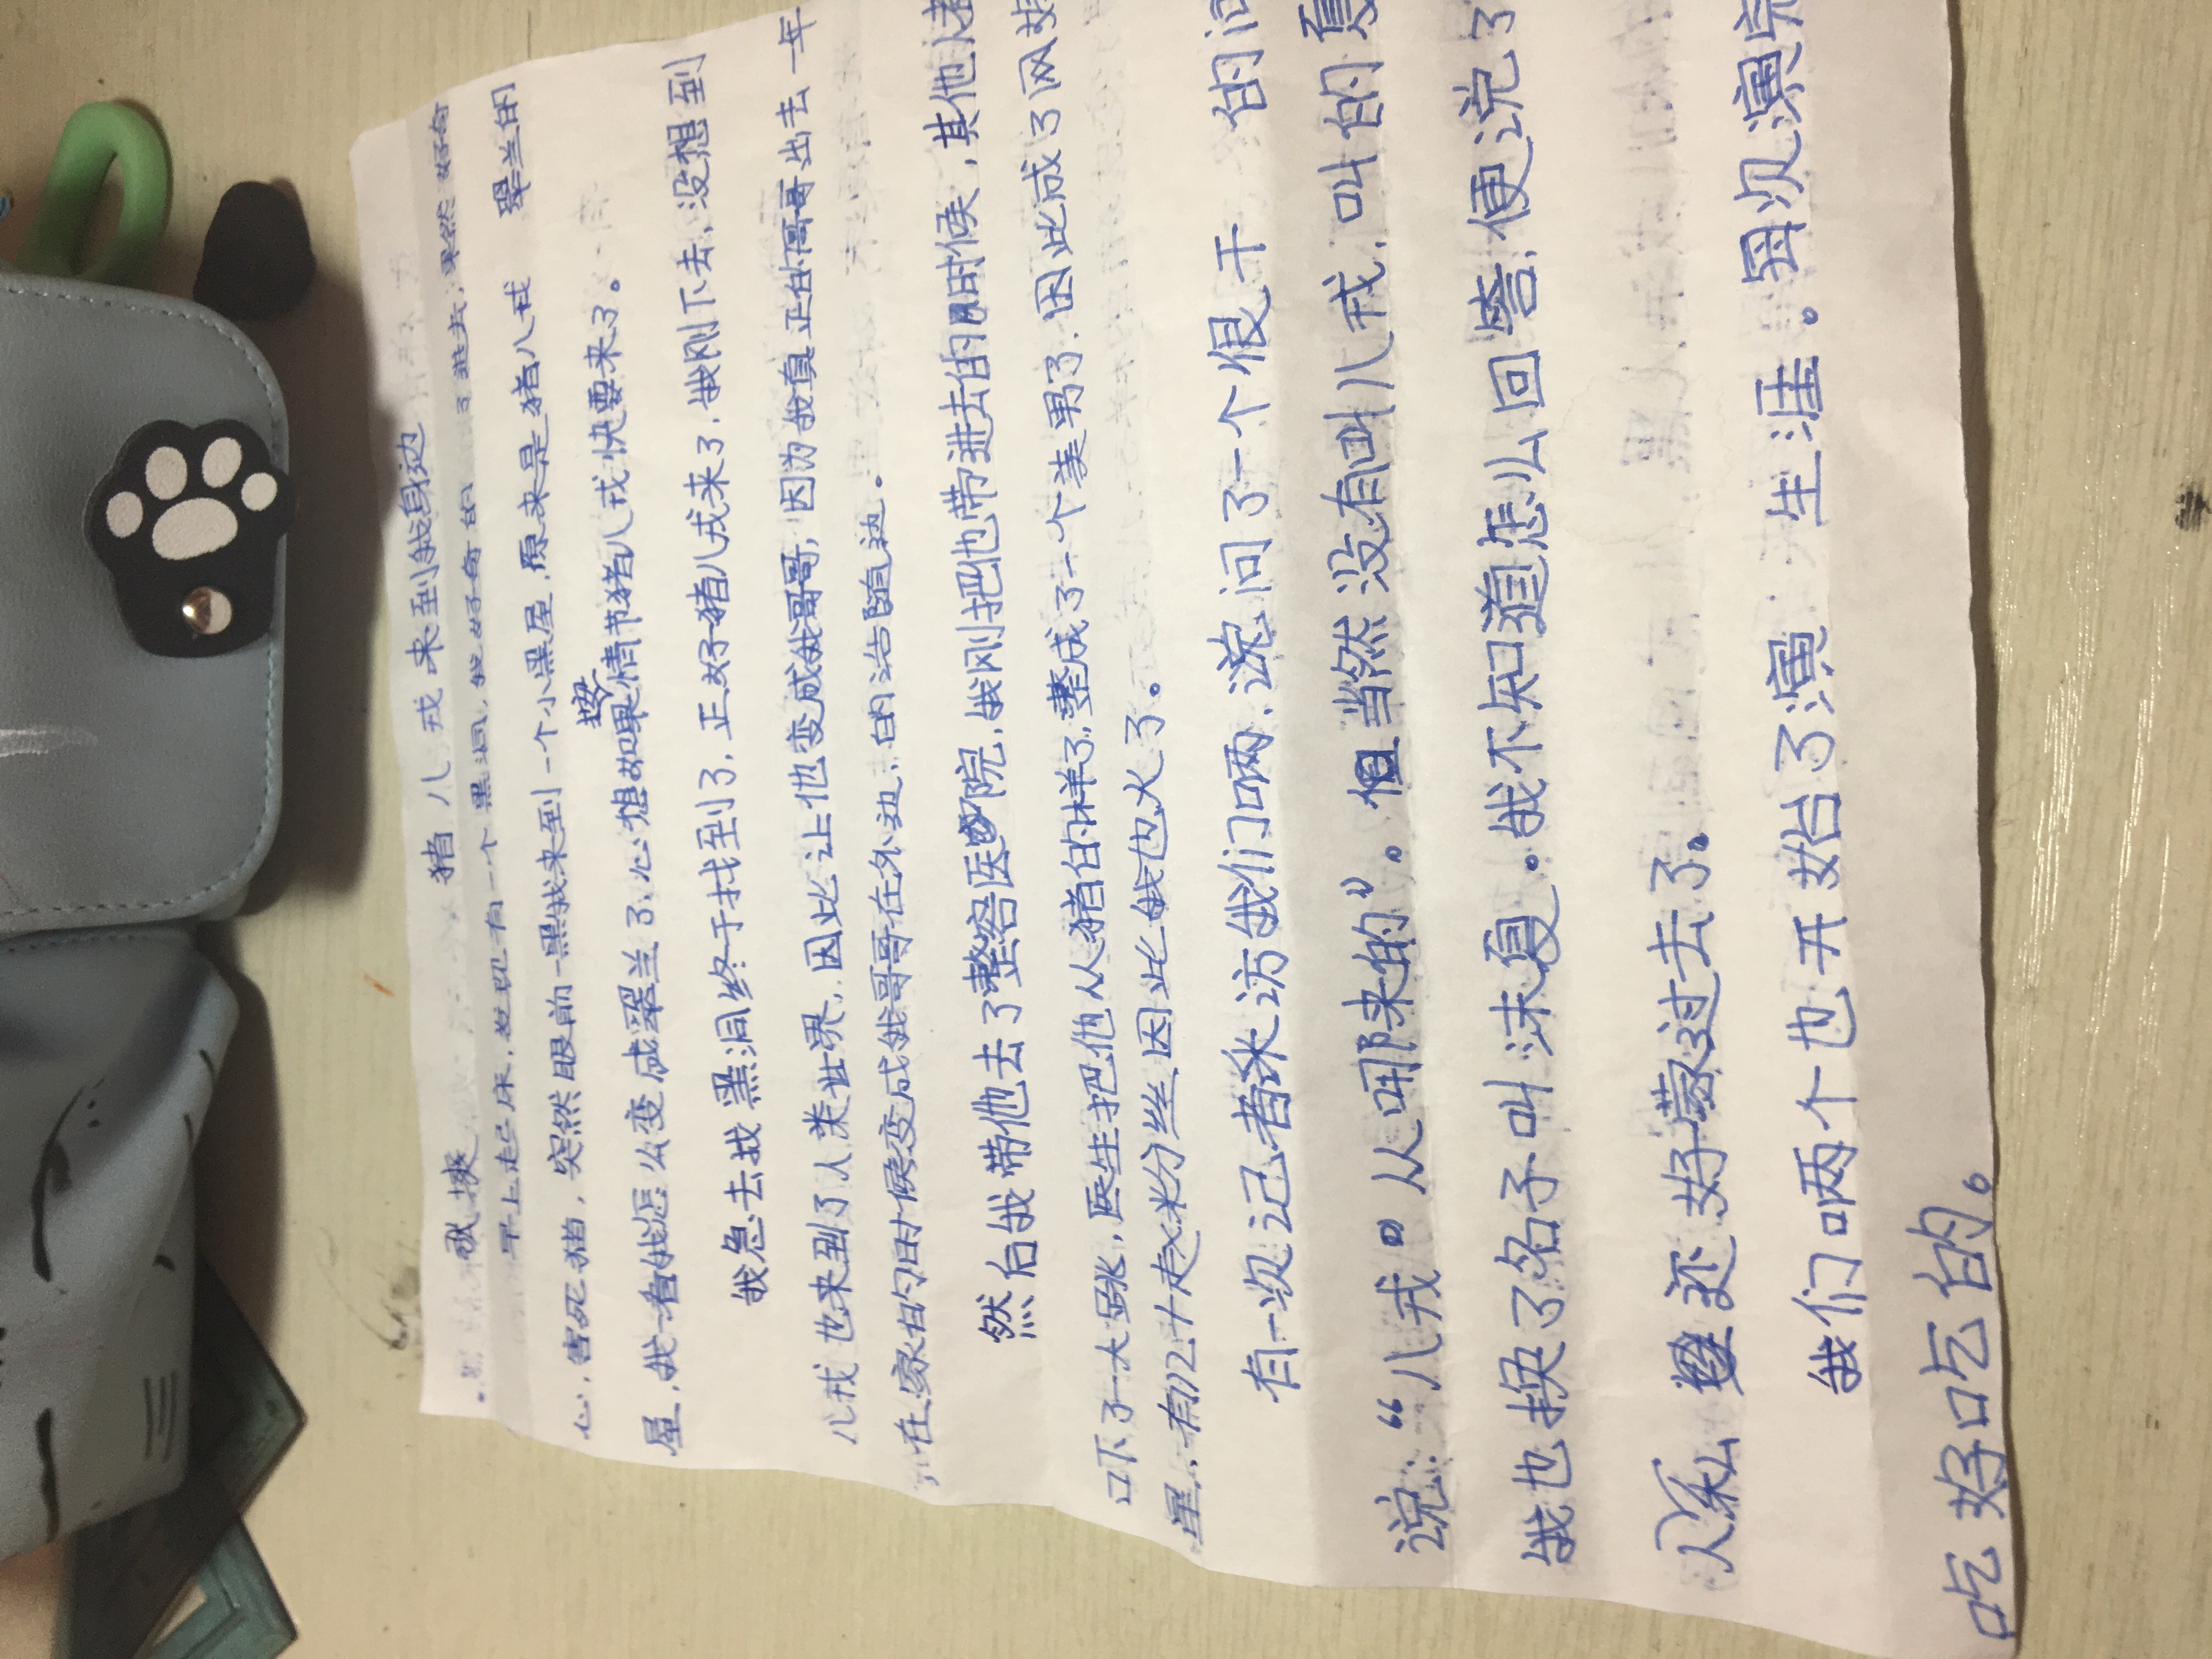 猪八戒来到我身边
早上起床，发现有一个黑洞，我好奇的 了进去，果然 好奇
心，害死猪，突然眼前一黑我来到一个小黑屋，原来是猪八戒 翠兰的
屋，我一看我怎么变成翠兰了，心想按情节猪八戒快要来了。
我急去找黑洞终于找到了，正好猪八戒来了，我刚下去，没想到
八戒也来到了人类世界，因此让他变成我哥哥，因为我真正的哥哥出去一年
在家的时候变成我哥哥在外边，的话随边。
然后我带他去了整容医院，我刚把他带进去的时候，其他人者
吓了一大跳，医生把他从猪的样了，整成了一个美男了，因此成了网
星，有12千走米分丝，因此我也火了。
有一次记者采访我们俩，说问了一个很干 的问
说：“八戒。从哪来的”。但当然没有叫八戒，叫的夏
我也换了名子叫沫夏。我不知道怎么回答，便说了
还好蒙过去了。
我们俩个也开始了演 生涯。每次演完
吃好吃的。